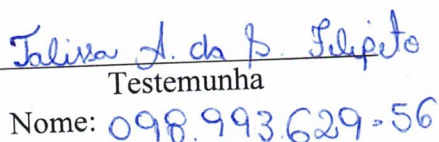 Talissa A. da S. Filipeto
Testemunha
Nome: 098.993.629-56